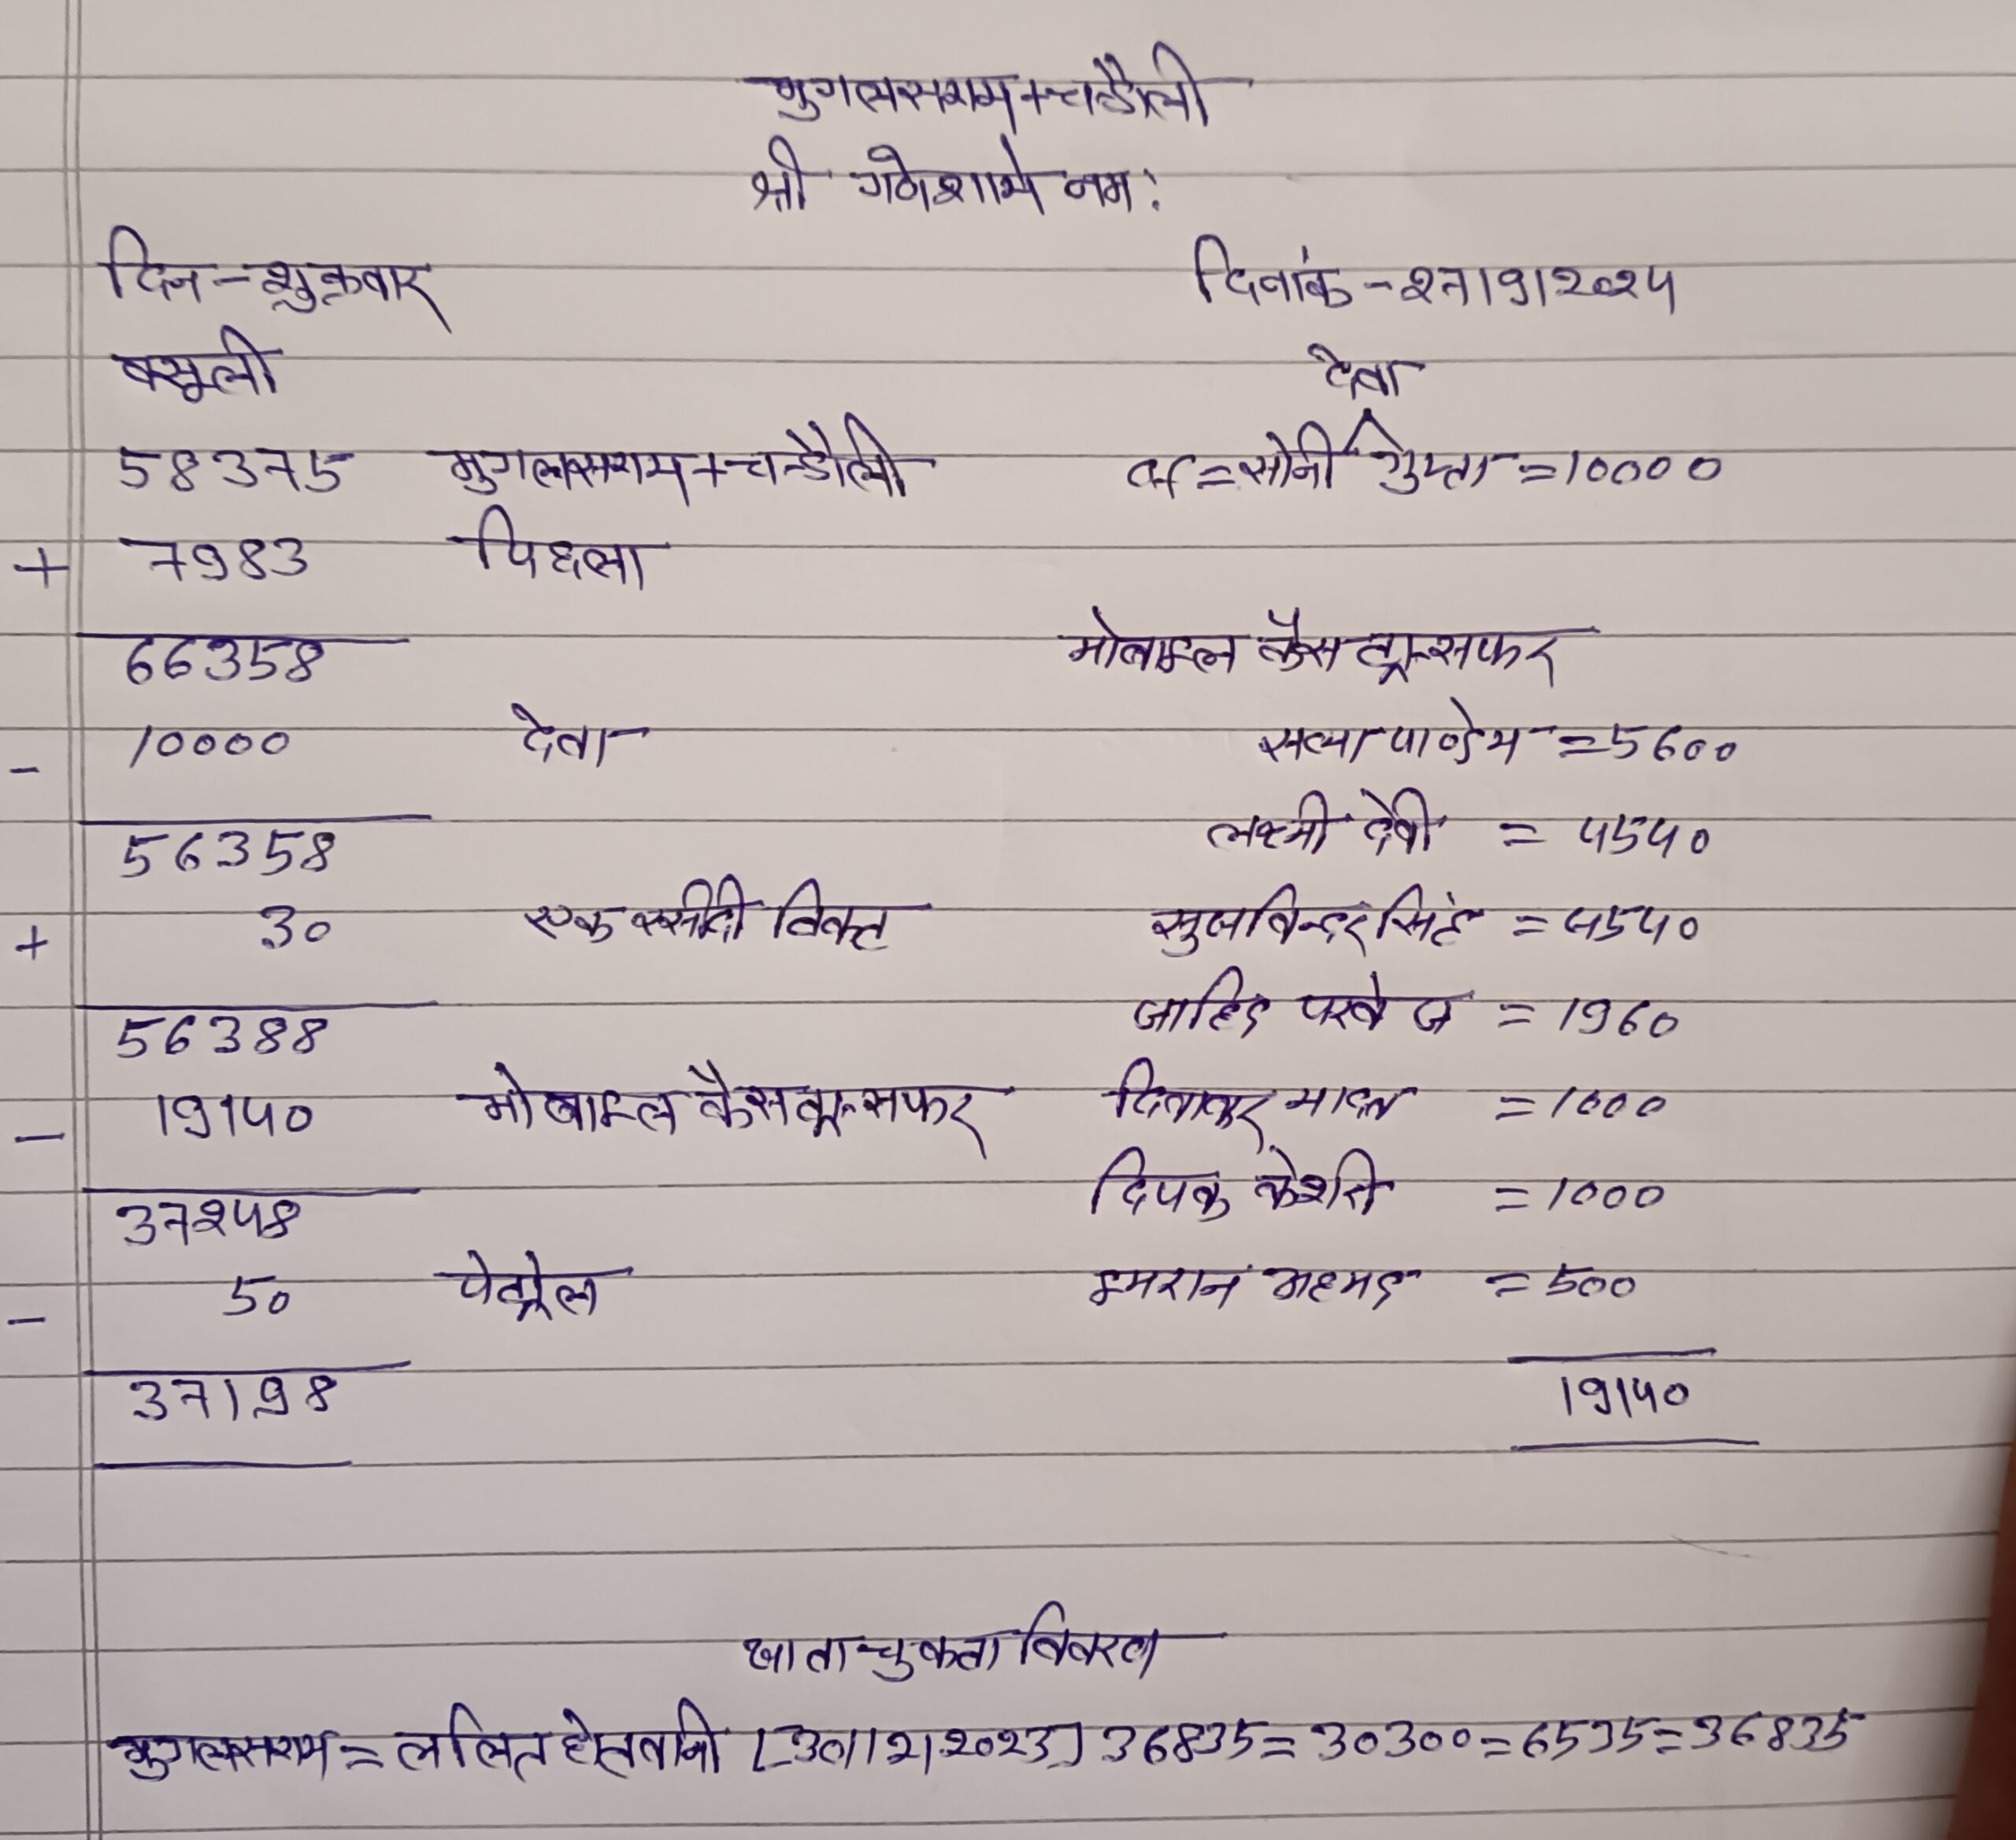 मुगलसराय+चन्दौली
श्री गणेशाये नमः
दिन-शुक्रवार दिनांक-27/9/2024
वसूली देता
58375 मुगलसराय+चन्दौली सोनी गुप्ता=10000
+ 7983 पिछला
66358 मोबाइल कैस ट्रान्सफर
- 10000 देता पाण्डेय=5600
56358 लक्ष्मी देवी = 4540
+ 30 एक रसीदी टिकट सुखविन्दर सिंह = 4540
56388 जाहिद परवेज = 1960
- 19140 मोबाइल कैस ट्रान्सफर दिवाकर यादव = 1000
37248 दिपक केशरी = 1000
- 50 पेट्रोल इमरान अहमद = 500
37198 19140
खाता चुकता विवरण
मुगलसराय=ललित [30/12/2023] 36835=30300=6535=36835